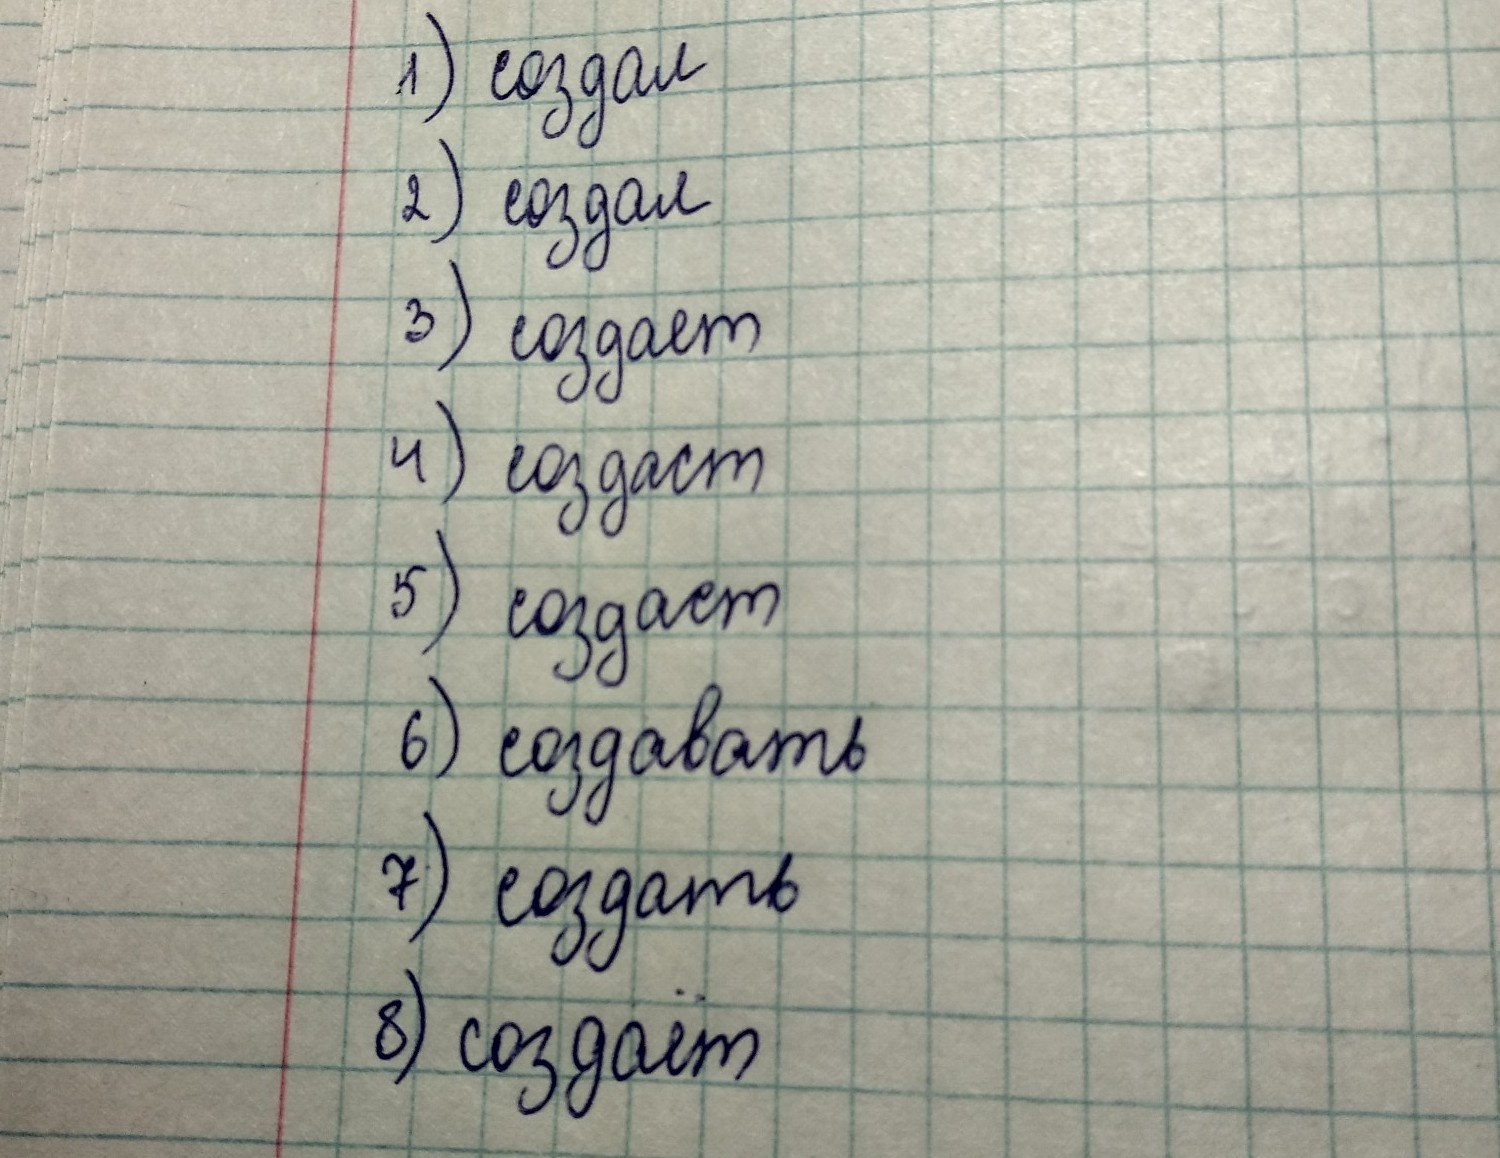 1) создал
2) создал
3) создает
4) создаст
5) создает
6) создавать
7) создать
8) создаёт